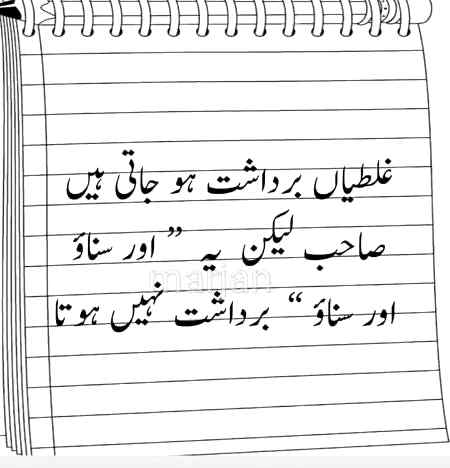 غلطیاں برداشت ہو جاتی ہیں
صاحب لیکن یہ ” اور سناؤ
marjan
اور سناؤ “ برداشت نہیں ہوتا